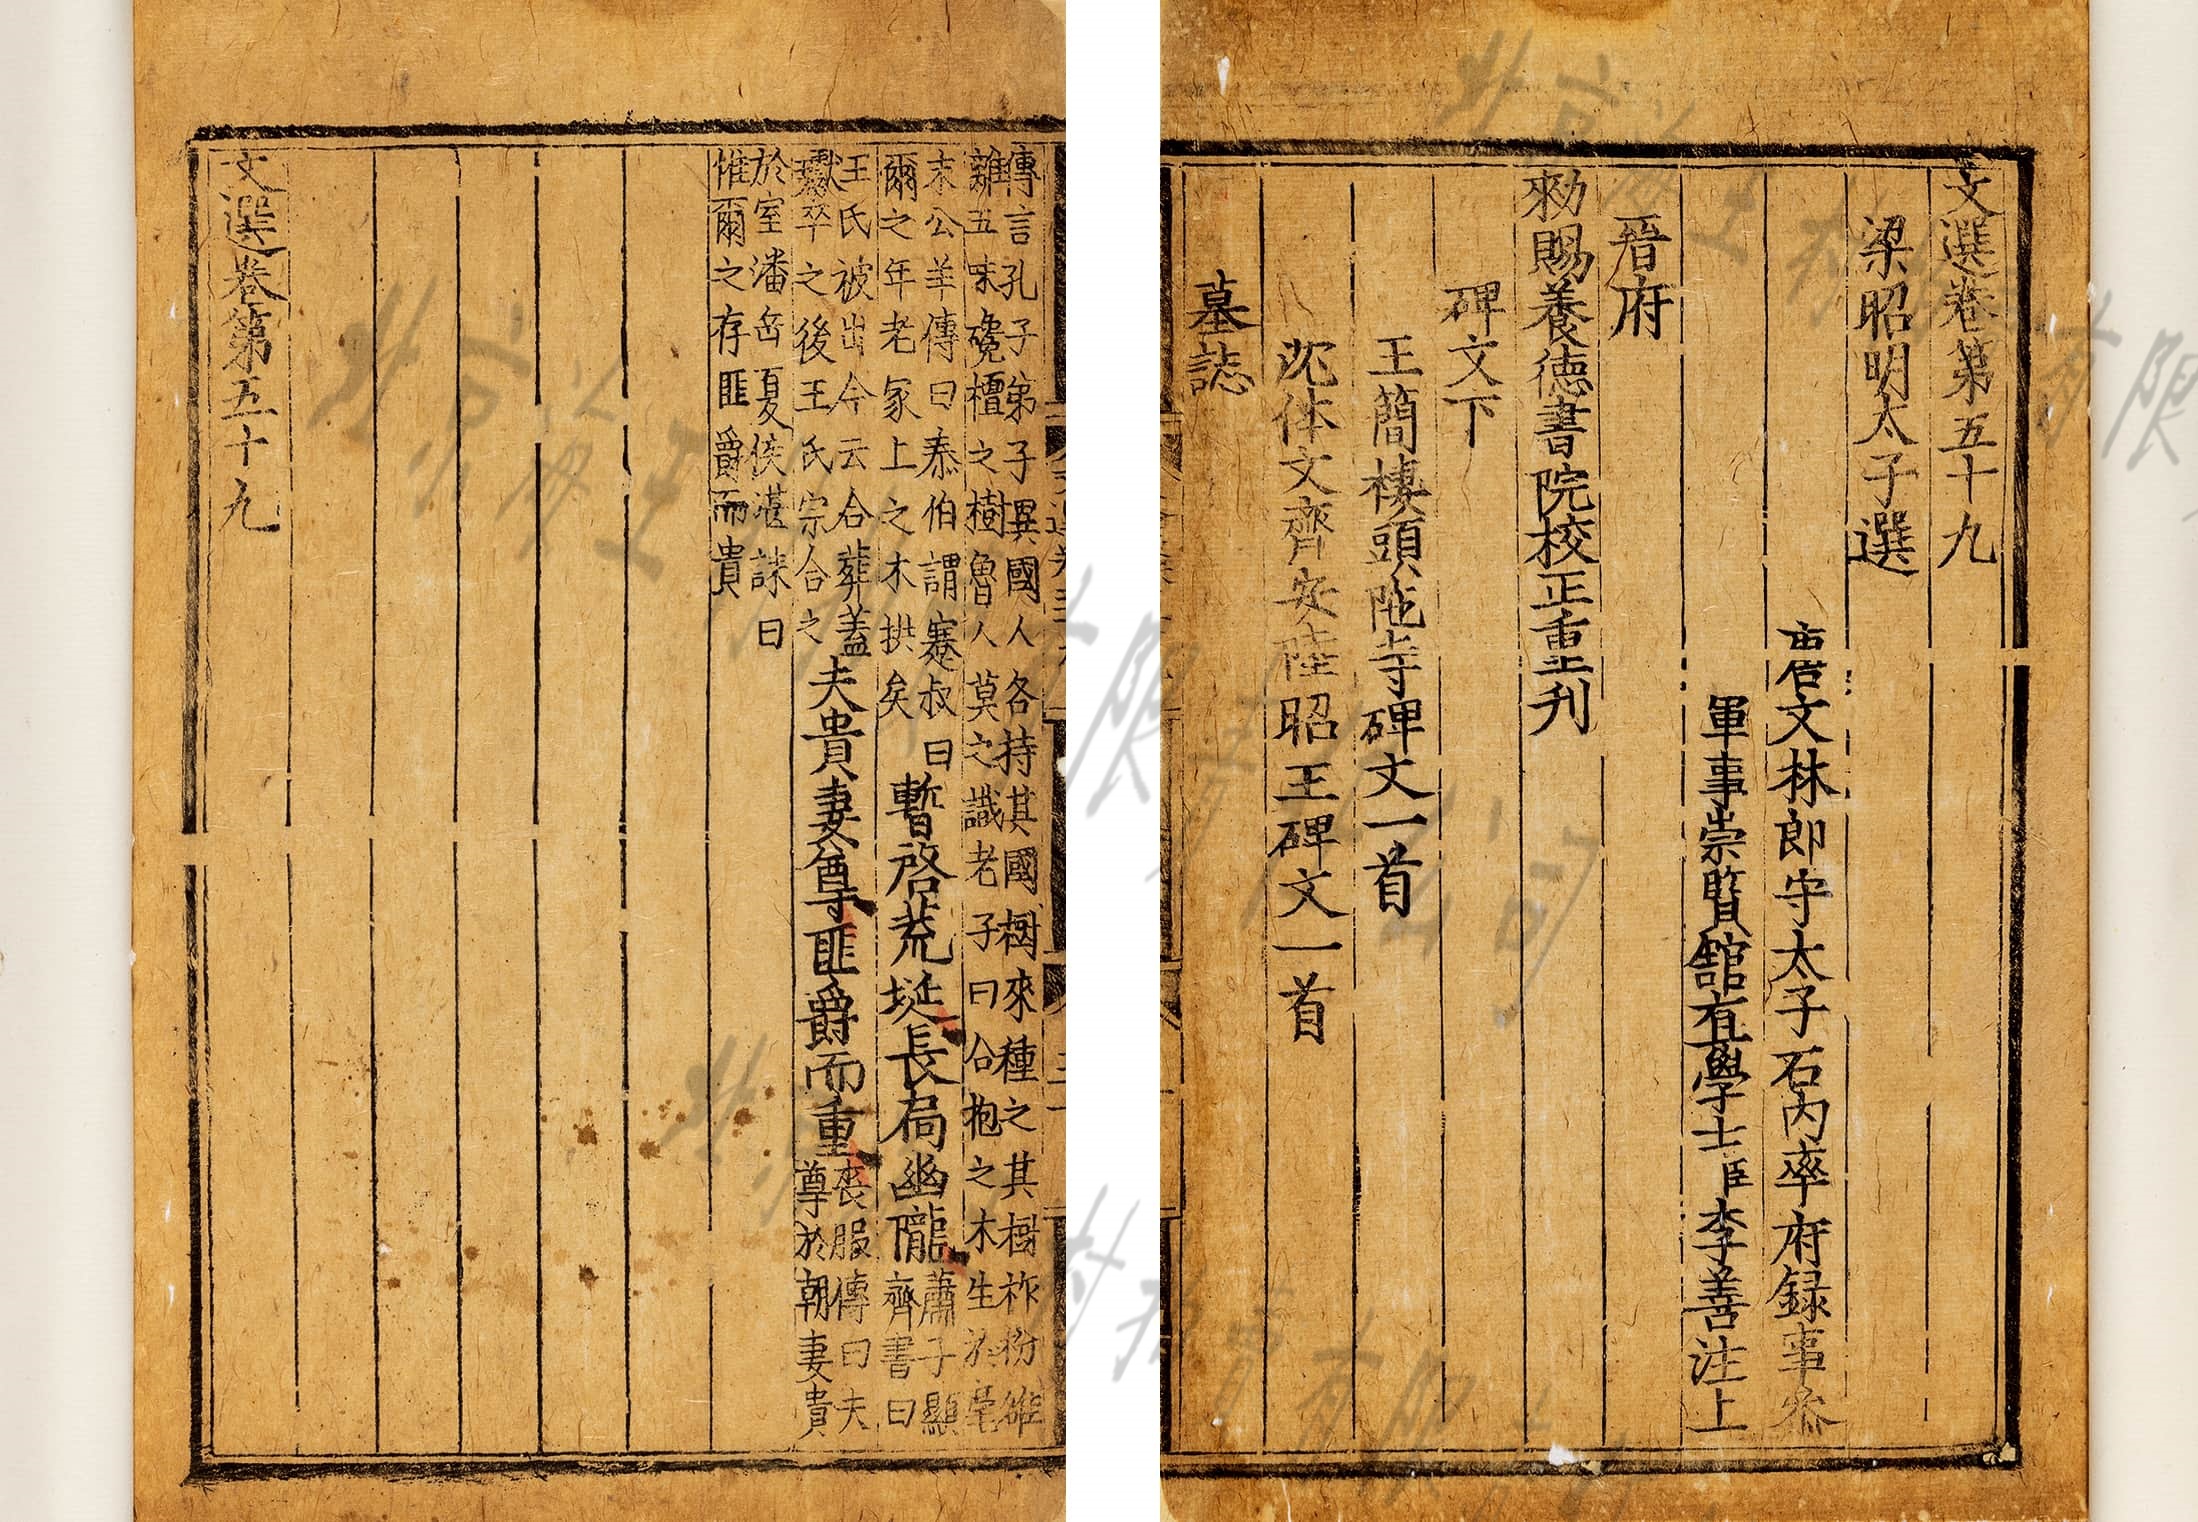 文選卷第五十九
梁昭明太子選
唐文林郎守太子右內率府録事叅
軍事崇賢館直學士臣李善注上
晉府
勑賜養德書院校正重刋
碑文下
王簡棲頭陁寺碑文一首
沈休文齊安陸昭王碑文一首
墓誌
傳言孔子弟子異國人各持其國樹來種之其樹柞枌雒
離五味毚檀之樹魯人莫之識老子曰合抱之木生於毫
末公羊傳曰秦伯謂蹇叔曰
爾之年老冢上之木拱矣
暫啓荒埏長扃幽隴
蕭子顯
齊書曰
王氏被出今云合葬蓋
瓛卒之後王氏宗合之
夫貴妻尊匪爵而重
喪服傳曰夫
尊於朝妻貴
於室潘岳夏侯湛誄曰
惟爾之存匪爵而貴
文選卷第五十九